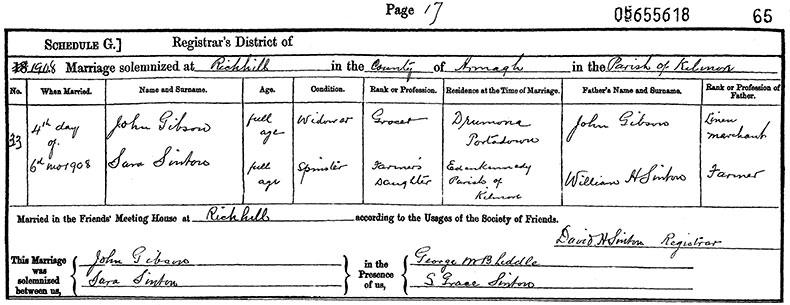 Page 17 05655618 65
SCHEDULE G.] Registrar's District of
1908 Marriage solemnized at Richhill in the County of Armagh in the Parish of Kilmore
No. When Married. Name and Surname. Age. Condition. Rank or Profession. Residence at the Time of Marriage. Father's Name and Surname. Rank or Profession of Father.
33 4th day of 6th mo 1908
John Gibson full age Widower Grocer Drumona Portadown John Gibson Linen merchant
Sara Sinton full age Spinster Farmer's daughter Edenkennedy Parish of Kilmore William H Sinton Farmer
Married in the Friends' Meeting House at Richhill according to the Usages of the Society of Friends.
David H Sinton Registrar
This Marriage was solemnized between us, John Gibson Sara Sinton in the Presence of us, George McB. Liddle S Grace Sinton